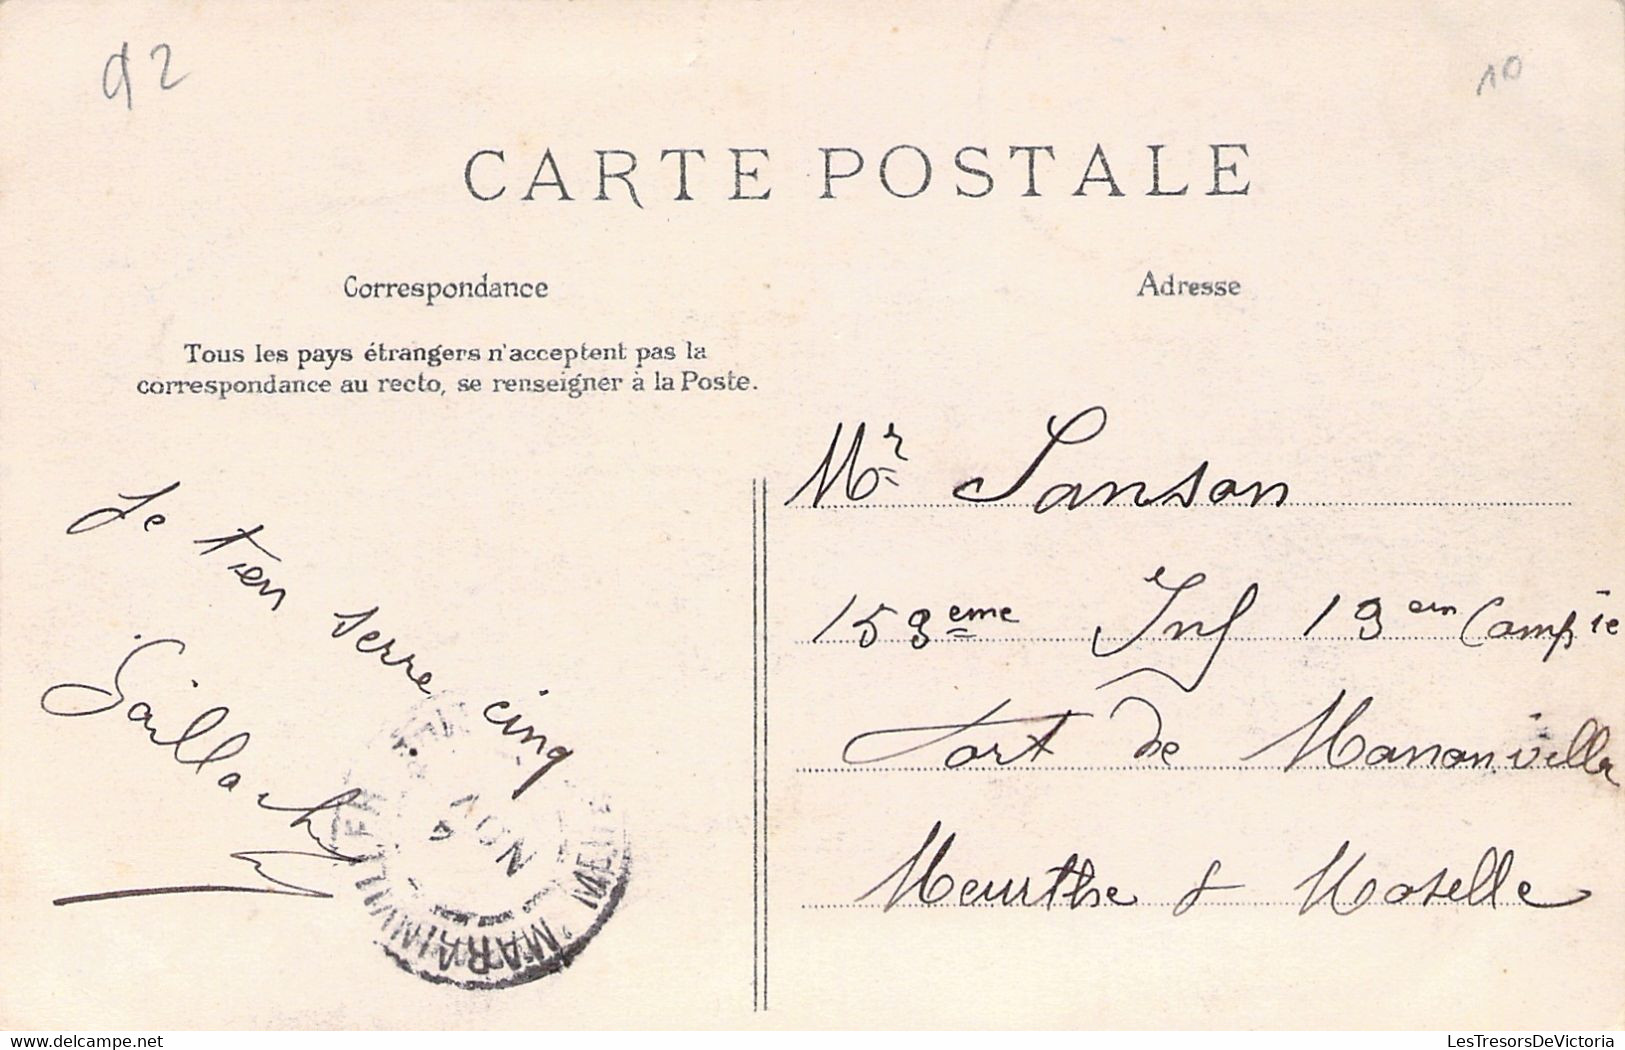 92
10
CARTE POSTALE
Correspondance
Adresse
Tous les pays étrangers n'acceptent pas la
correspondance au recto, se renseigner à la Poste.
Mr Sanson
153eme Inf 13em Compie
Fort de Manonviller
Meurthe & Moselle
Je t'en serre cinq
Gaillard
MARAINVILLER
NOV
LesTresorsDeVictoria
delcampe.net